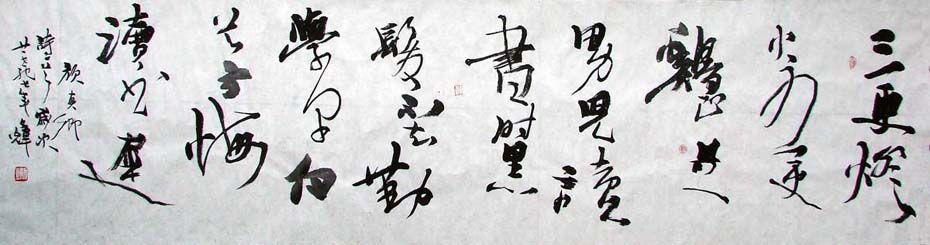 三更燈
火五更
鷄正是
男兒讀
書時黑
髮不知勤
學早白
首方悔
讀書遲
顏真卿
詩
年